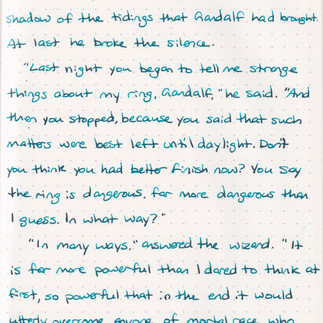 shadow of the tidings that Gandalf had brought.
At last he broke the silence.
"Last night you began to tell me strange
things about my ring, Gandalf," he said. "And
then you stopped, because you said that such
matters were best left until daylight. Don't
you think you had better finish now? You say
the ring is dangerous, far more dangerous than
I guess. In what way?"
"In many ways," answered the wizard. "It
is far more powerful than I dared to think at
first, so powerful that in the end it would
utterly overcome anyone of mortal race who